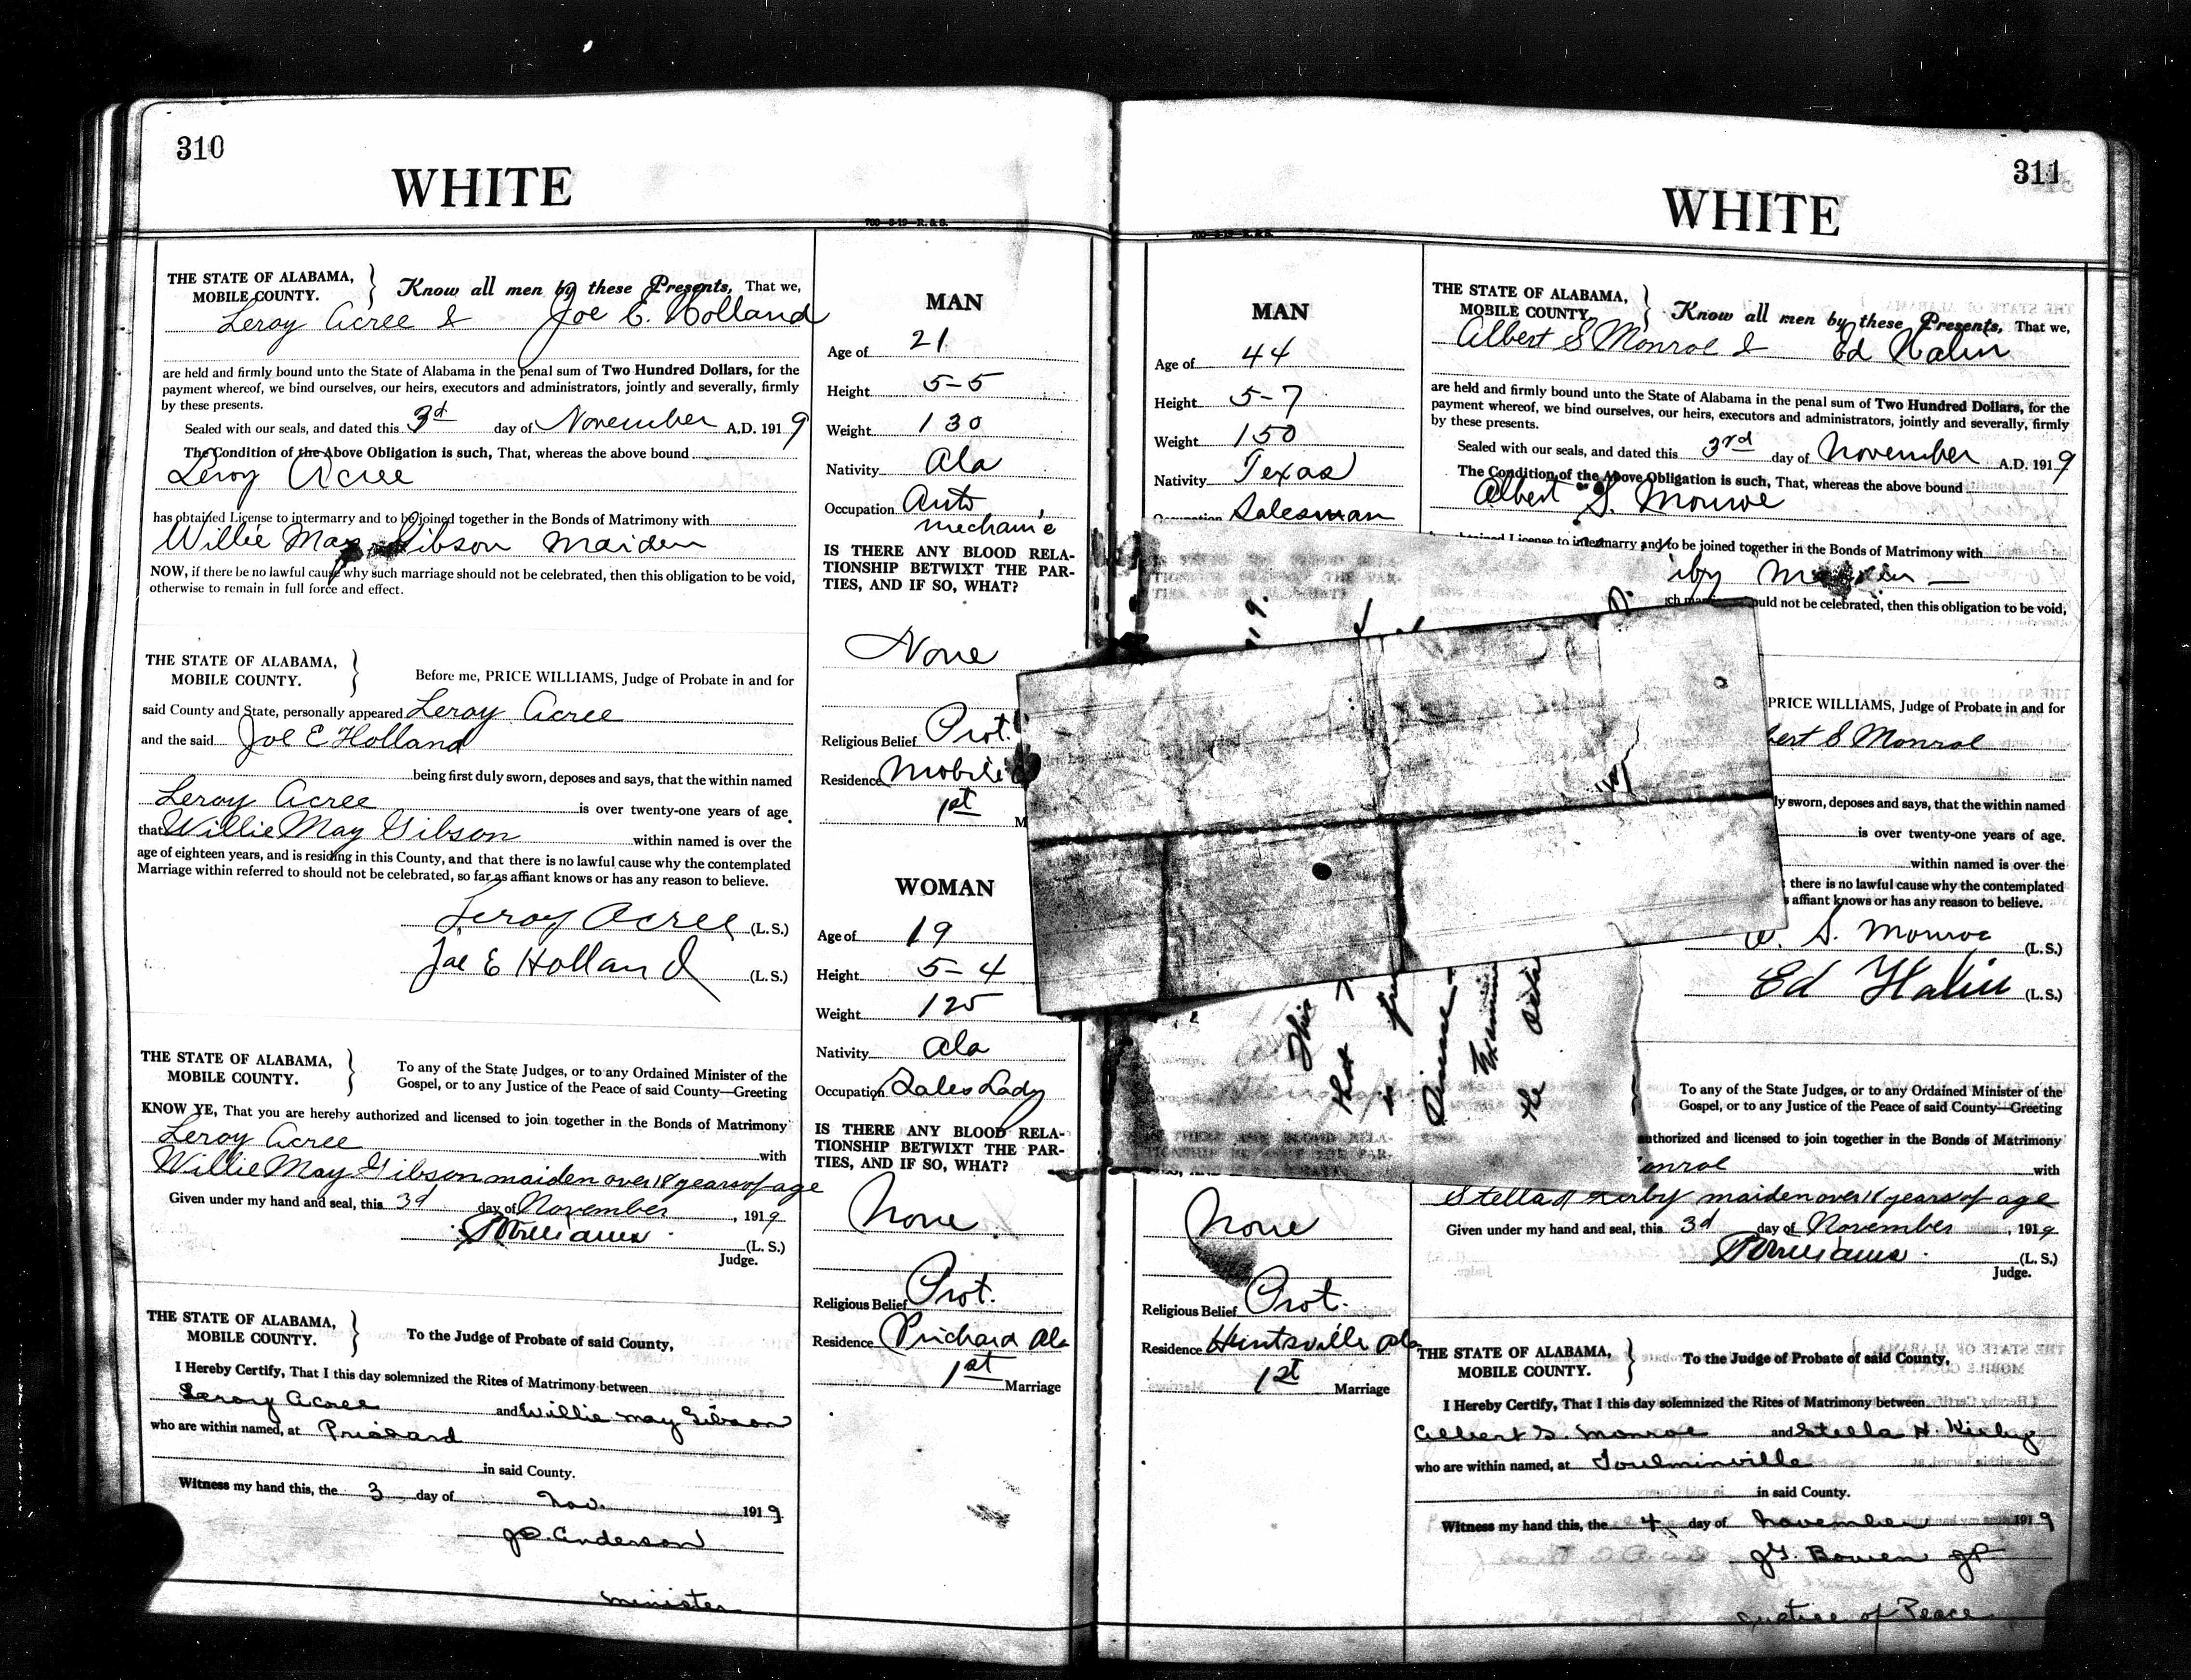 310
WHITE
700—5-19—R. & S.
THE STATE OF ALABAMA,
MOBILE COUNTY.
Know all men by these Presents, That we,
Leroy Acree & Joe E. Holland
are held and firmly bound unto the State of Alabama in the penal sum of Two Hundred Dollars, for the
payment whereof, we bind ourselves, our heirs, executors and administrators, jointly and severally, firmly
by these presents.
Sealed with our seals, and dated this 3d day of November A.D. 1919
The Condition of the Above Obligation is such, That, whereas the above bound
Leroy Acree
has obtained License to intermarry and to be joined together in the Bonds of Matrimony with
Willie May Gibson maiden
NOW, if there be no lawful cause why such marriage should not be celebrated, then this obligation to be void,
otherwise to remain in full force and effect.
THE STATE OF ALABAMA,
MOBILE COUNTY.
Before me, PRICE WILLIAMS, Judge of Probate in and for
said County and State, personally appeared Leroy Acree
and the said Joe E Holland
being first duly sworn, deposes and says, that the within named
Leroy Acree is over twenty-one years of age,
that Willie May Gibson within named is over the
age of eighteen years, and is residing in this County, and that there is no lawful cause why the contemplated
Marriage within referred to should not be celebrated, so far as affiant knows or has any reason to believe.
Leroy Acree (L.S.)
Joe E Holland (L.S.)
THE STATE OF ALABAMA,
MOBILE COUNTY.
To any of the State Judges, or to any Ordained Minister of the
Gospel, or to any Justice of the Peace of said County—Greeting
KNOW YE, That you are hereby authorized and licensed to join together in the Bonds of Matrimony
Leroy Acree with
Willie May Gibson maiden over 18 years of age
Given under my hand and seal, this 3d day of November, 1919
P Williams (L.S.)
Judge.
THE STATE OF ALABAMA,
MOBILE COUNTY.
To the Judge of Probate of said County,
I Hereby Certify, That I this day solemnized the Rites of Matrimony between
Leroy Acree and Willie may Gibson
who are within named, at Prichard
in said County.
Witness my hand this, the 3 day of Nov. 1919
Anderson
minister
MAN
Age of 21
Height 5-5
Weight 130
Nativity Ala
Occupation Auto
mechanic
IS THERE ANY BLOOD RELA-
TIONSHIP BETWIXT THE PAR-
TIES, AND IF SO, WHAT?
None
Religious Belief Prot.
Residence Mobile
1st M
WOMAN
Age of 19
Height 5-4
Weight 125
Nativity Ala
Occupation Sales Lady
IS THERE ANY BLOOD RELA-
TIONSHIP BETWIXT THE PAR-
TIES, AND IF SO, WHAT?
None
Religious Belief Prot.
Residence Prichard Ala
1st Marriage
311
WHITE
700—5-19—R. & S.
MAN
Age of 44
Height 5-7
Weight 150
Nativity Texas
Occupation Salesman
This
that
Disease
the
None
Religious Belief Prot.
Residence Huntsville Ala
1st Marriage
THE STATE OF ALABAMA,
MOBILE COUNTY.
Know all men by these Presents, That we,
Albert S Monroe & Ed Halin
are held and firmly bound unto the State of Alabama in the penal sum of Two Hundred Dollars, for the
payment whereof, we bind ourselves, our heirs, executors and administrators, jointly and severally, firmly
by these presents.
Sealed with our seals, and dated this 3rd day of November A.D. 1919
The Condition of the Above Obligation is such, That, whereas the above bound
Albert S. Monroe
License to intermarry and to be joined together in the Bonds of Matrimony with
irby Maiden
ould not be celebrated, then this obligation to be void,
PRICE WILLIAMS, Judge of Probate in and for
bert S Monroe
ly sworn, deposes and says, that the within named
is over twenty-one years of age.
within named is over the
there is no lawful cause why the contemplated
affiant knows or has any reason to believe.
S. Monroe (L.S.)
Ed Halin (L.S.)
To any of the State Judges, or to any Ordained Minister of the
Gospel, or to any Justice of the Peace of said County—Greeting
authorized and licensed to join together in the Bonds of Matrimony
onroe with
Stella H Kirby maiden over 18 years of age
Given under my hand and seal, this 3d day of November, 1919
P Williams (L.S.)
Judge.
THE STATE OF ALABAMA,
MOBILE COUNTY.
To the Judge of Probate of said County,
I Hereby Certify, That I this day solemnized the Rites of Matrimony between
Albert S. Monroe and Stella H. Kirby
who are within named, at Toulminville
in said County.
Witness my hand this, the 4 day of November 1919
J.T. Bowen JP
Justice of Peace